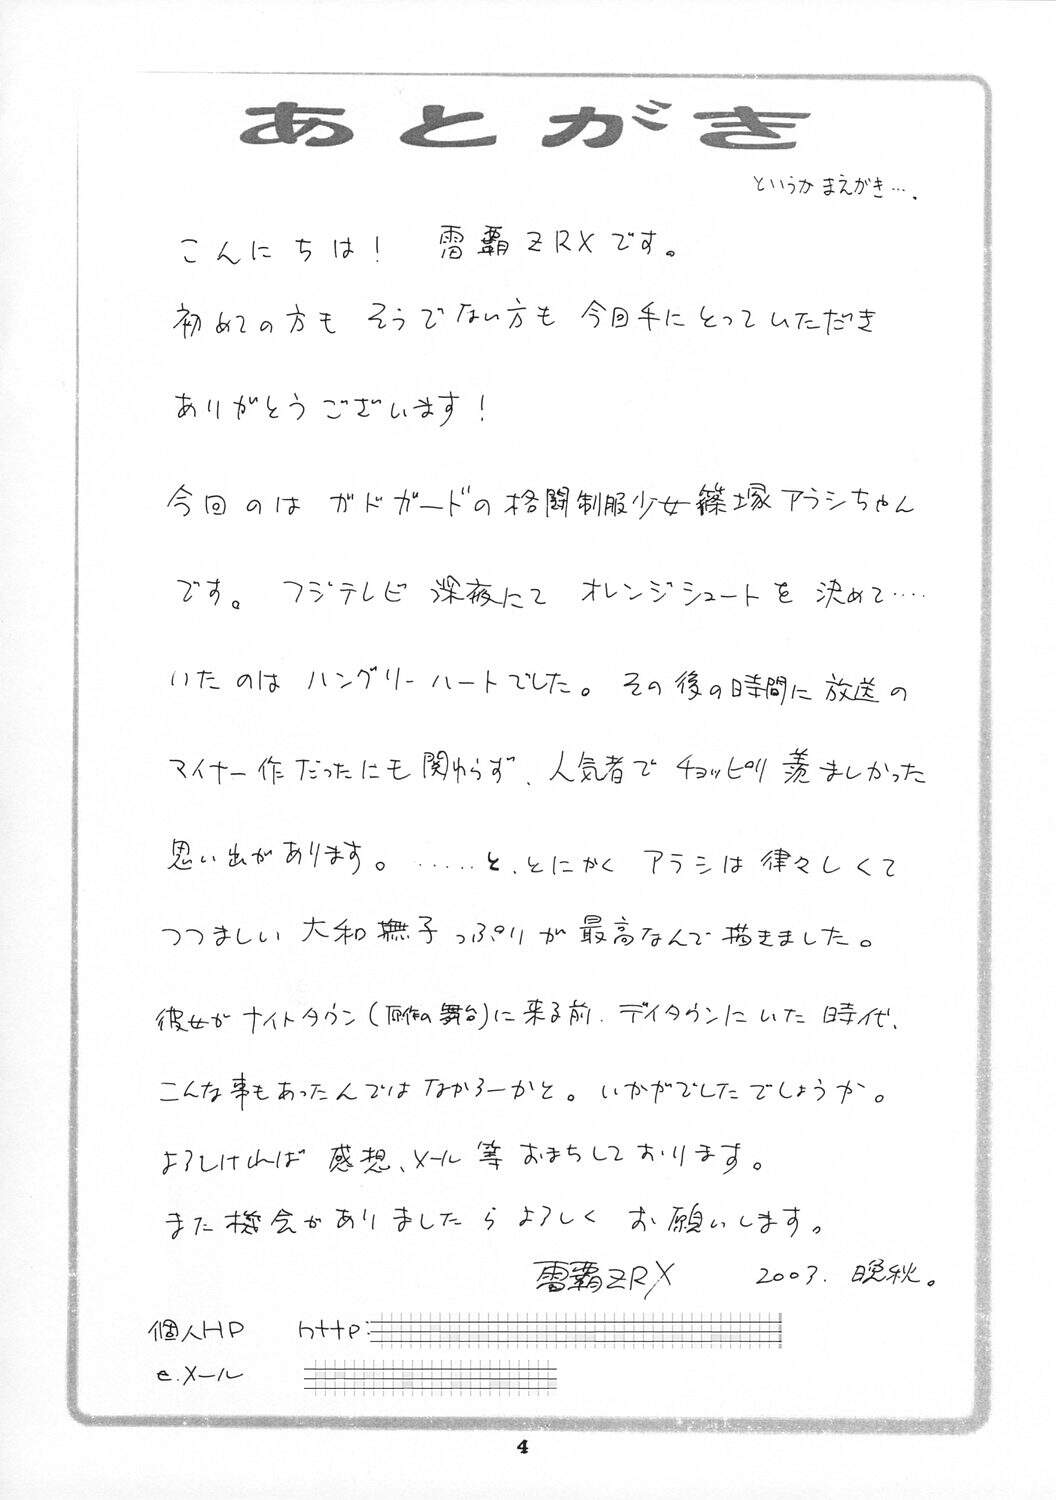 あとがき
というか まえがき….
こんにちは! 雷覇ZRXです。
初めての方も そうでない方も 今回手にとっていただき
ありがとうございます!
今回のは ガドガードの格闘制服少女篠塚アラシちゃん
です。 フジテレビ 深夜にて オレンジシュートを 決めて‥‥
いたのは ハングリーハートでした。 その後の時間に 放送の
マイナー作だったにも関わらず、人気者で チョッピリ 羨ましかった
思い出があります。 ‥‥‥と、とにかく アラシは 律々しくて
つつましい 大和撫子っぷりが 最高なんで 描きました。
彼女が ナイトタウン(原作の舞台)に 来る前、デイタウンにいた 時代、
こんな事もあったんではなかろーかと。 いかがでしたでしょうか。
よろしければ 感想、メール等 おまちしております。
また機会がありましたら よろしく お願いします。
雷覇ZRX 2003. 晩秋。
個人HP http:
e.メール
4